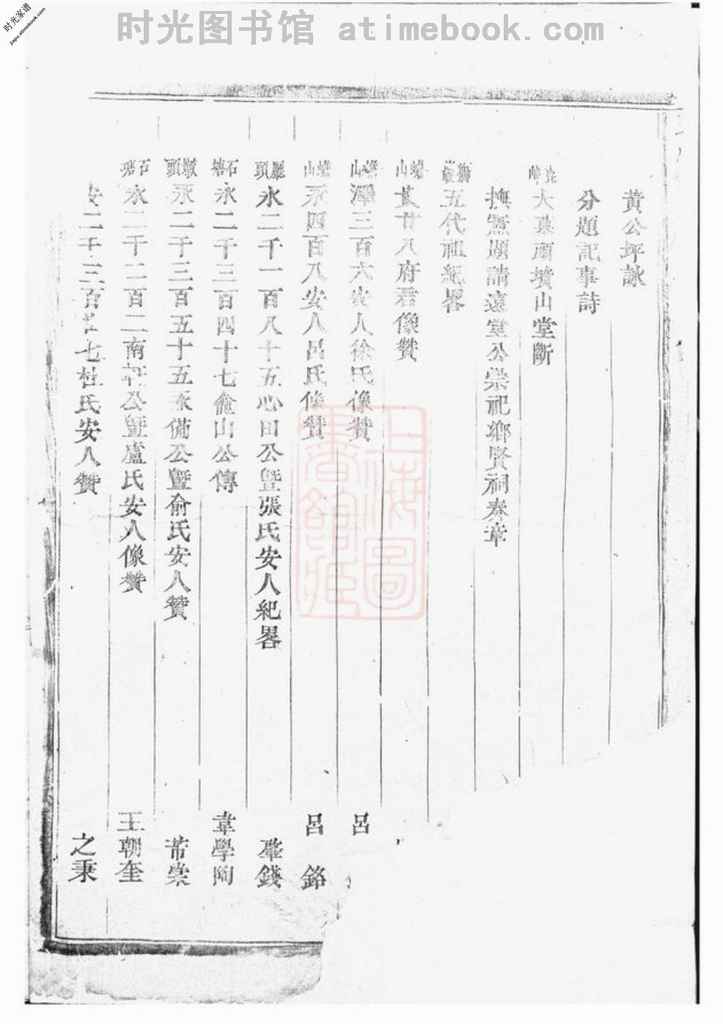 时光图书馆 atimebook.com
时光家谱
jiapu.atimebook.com
黃公坪詠
分題記事詩
大 墳山堂斷
撫 題請遠堂公崇祀鄉賢祠奏章
五代祖紀畧
廿八府君像贊
澤三百六安人徐氏像贊 呂
永四百八安人呂氏像贊 呂銘
永二千一百八十五心田公暨張氏安人紀畧 錢
石塘 永二千三百四十七 山公傳 韋學陶
墩頭 永二千三百五十五 備公暨俞氏安人贊 崇
石塘 永二千二百二南 公暨盧氏安人像贊 王朝奎
二千三百 七杜氏安人贊 之秉
上海圖書館藏